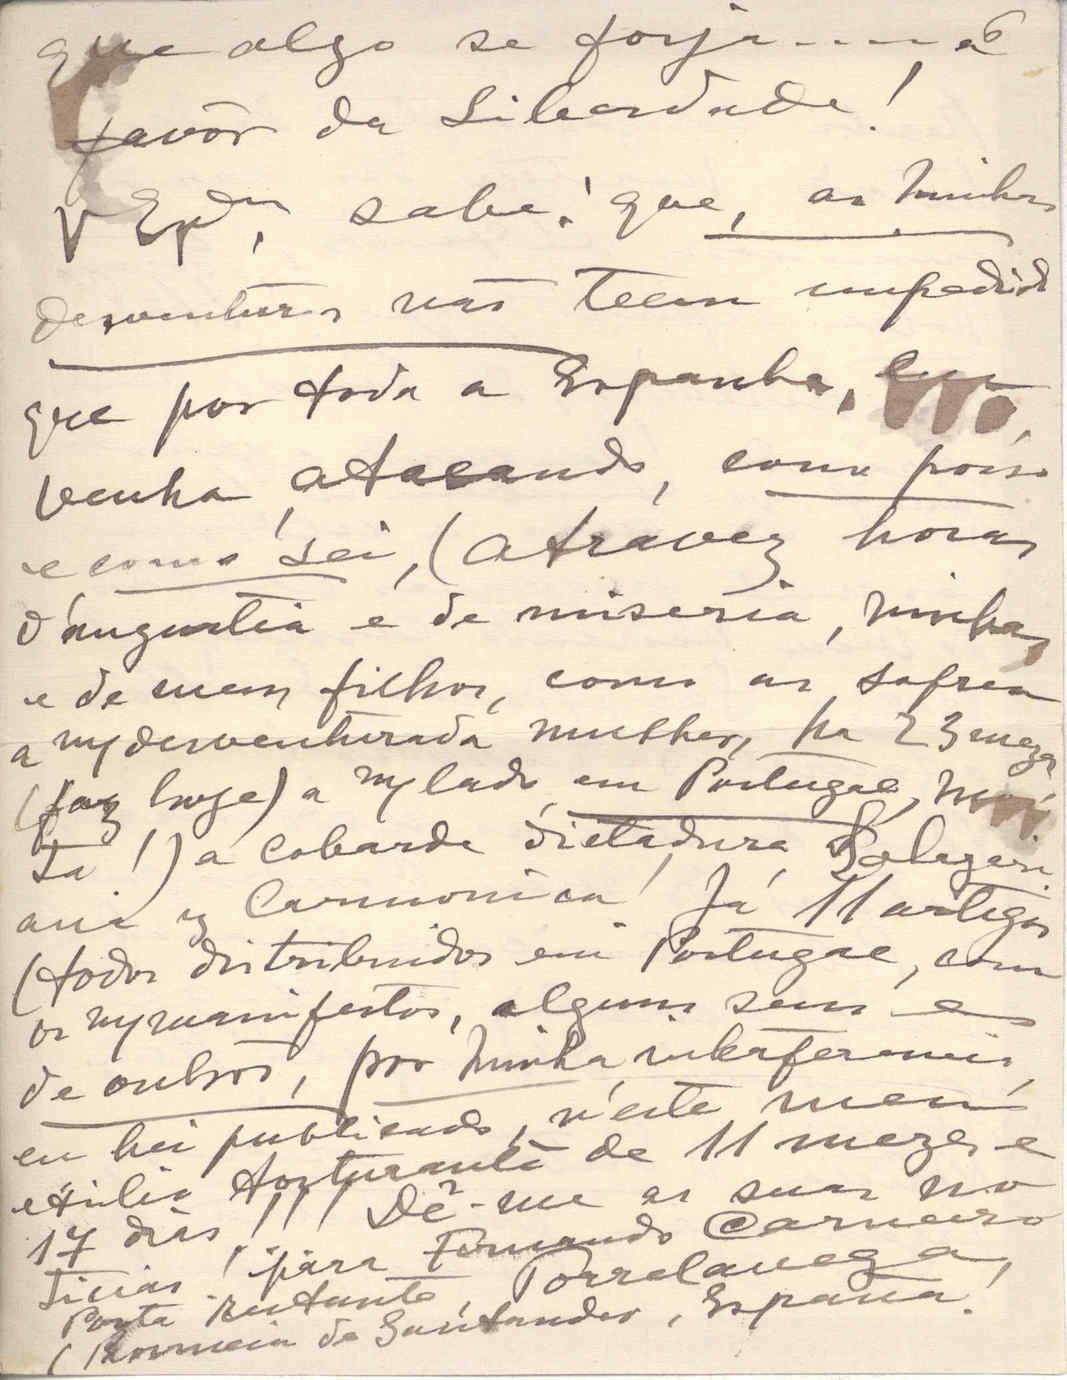 que algo se forja.....a 6
favôr da Liberdade!
V Epdn, sabe! que, as minhas
desventuras nãs teem impedido
que por toda a Espanha, eu
venha, atacando, como posso
e como sei, (atravez horas
d'angustia e de miseria, minhas,
e de meus filhos, como as sofreu
a my desventurada mulher, ha 23 mezes
(faz hoje) a my lado em Portugal, mor
ta!) a cobarde dictadura Salazari
ana y Carmonica! Já 11 artigos
(todos distribuidos em Portugal, com
os my manifestos, alguns seus e
de outros, por minha interferencia,
eu hei publicado, n'este meu
exilio torturante de 11 mezes e
17 dias!!! Dê-me as suas no
ticias! para Fernando Carneiro
Posta restante, Torrelavega,
(Provincia de Santander, España!